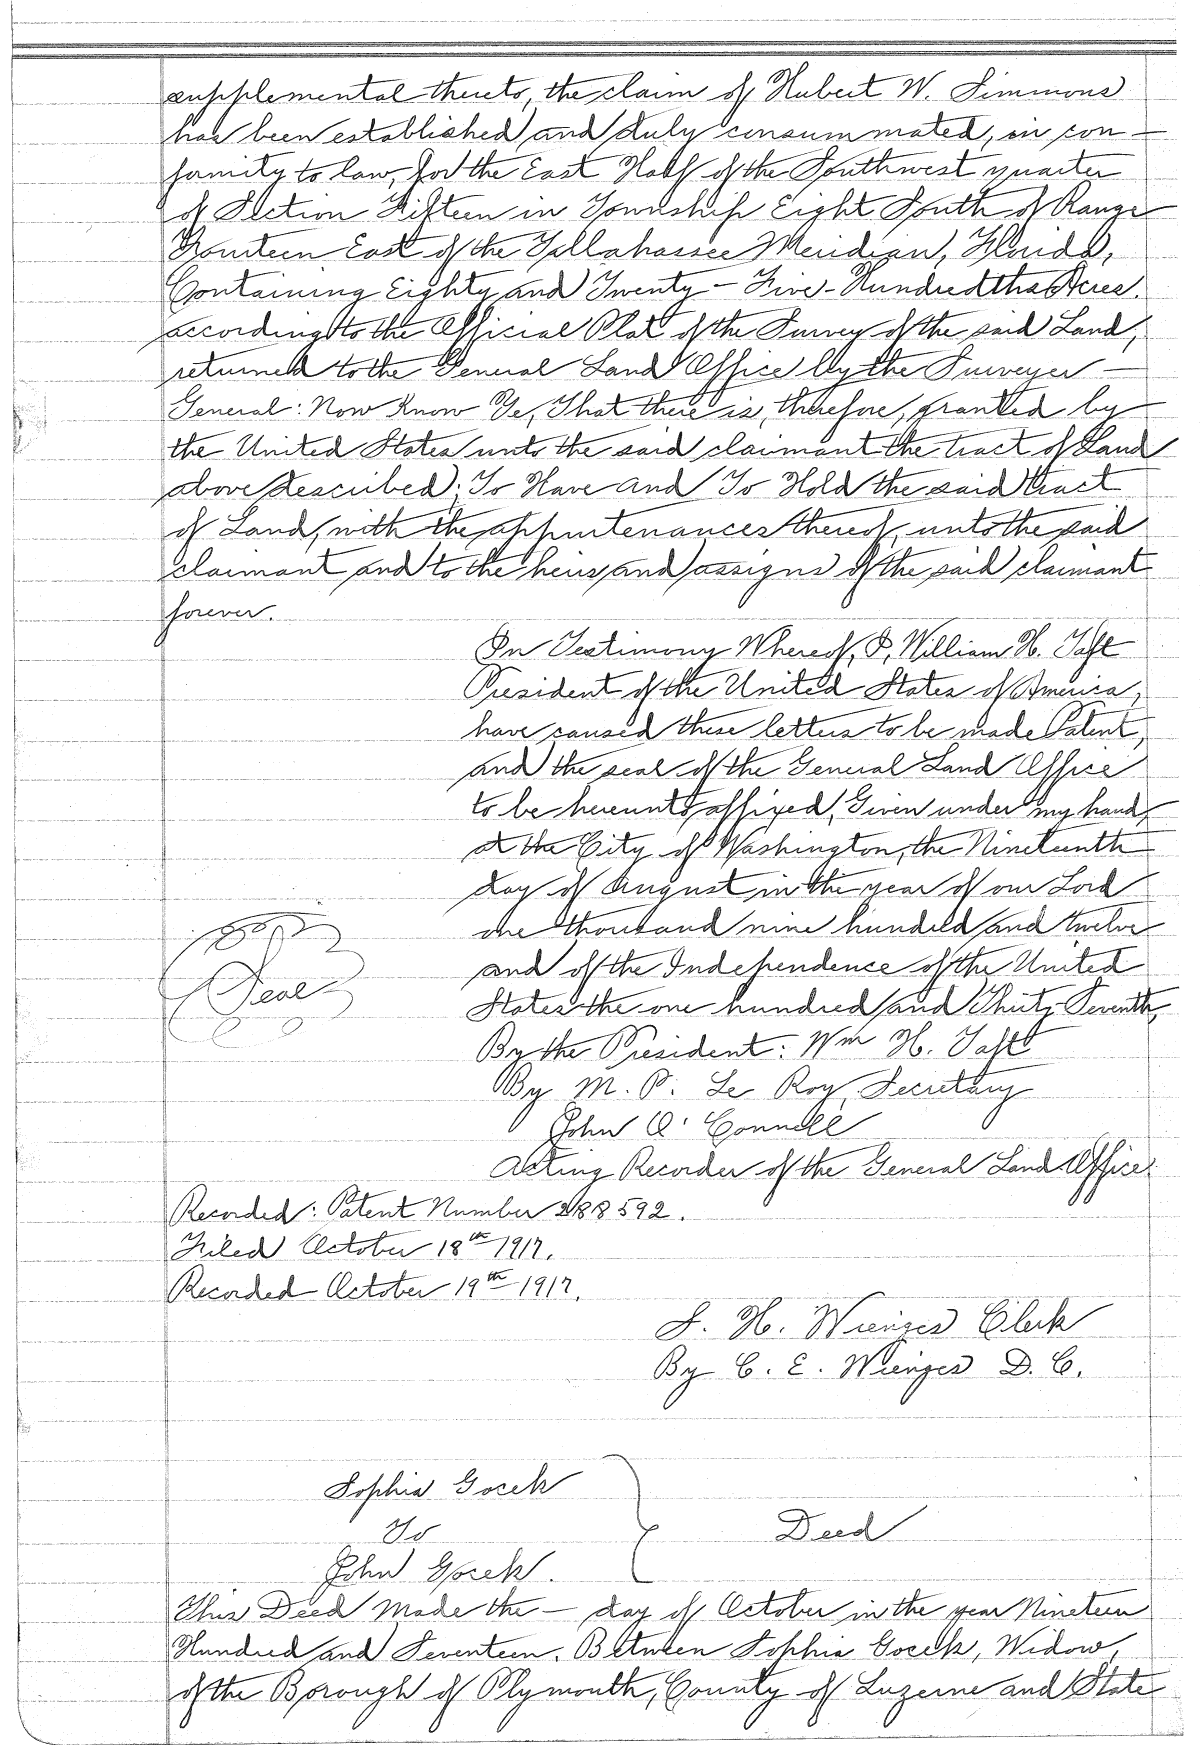 supplemental thereto, the claim of Hubert W. Simmons
has been established and duly consummated, in con-
formity to law, for the East Half of the Southwest quarter
of Section Fifteen in Township Eight South of Range
Fourteen East of the Tallahassee Meridian, Florida,
Containing Eighty and Twenty-Five-Hundredths Acres.
according to the Official Plat of the Survey of the said Land,
returned to the General Land Office by the Surveyor-
General: Now Know Ye, That there is, therefore, granted by
the United States unto the said claimant the tract of Land
above described; To Have and To Hold the said tract
of Land, with the appurtenances thereof, unto the said
claimant and to the heirs and assigns of the said claimant
forever.
In Testimony Whereof, I, William H. Taft
President of the United States of America,
have caused these letters to be made Patent,
and the seal of the General Land Office
to be hereunto affixed, Given under my hand,
at the City of Washington, the Nineteenth
day of August in the year of our Lord
one thousand nine hundred and twelve
and of the Independence of the United
Seal
States the one hundred and Thirty-Seventh,
By the President: Wm H. Taft
By M. P. Le Roy, Secretary
John O'Connell
Acting Recorder of the General Land Office.
Recorded: Patent Number 288592.
Filed October 18th 1917.
Recorded October 19th 1917.
S. H. Wienges Clerk
By C. E. Wienges D. C.
Sophia Gocek
To
Deed
John Gocek.
This Deed Made the - day of October in the year Nineteen
Hundred and Seventeen. Between Sophia Gocek, Widow,
of the Borough of Plymouth, County of Luzerne and State